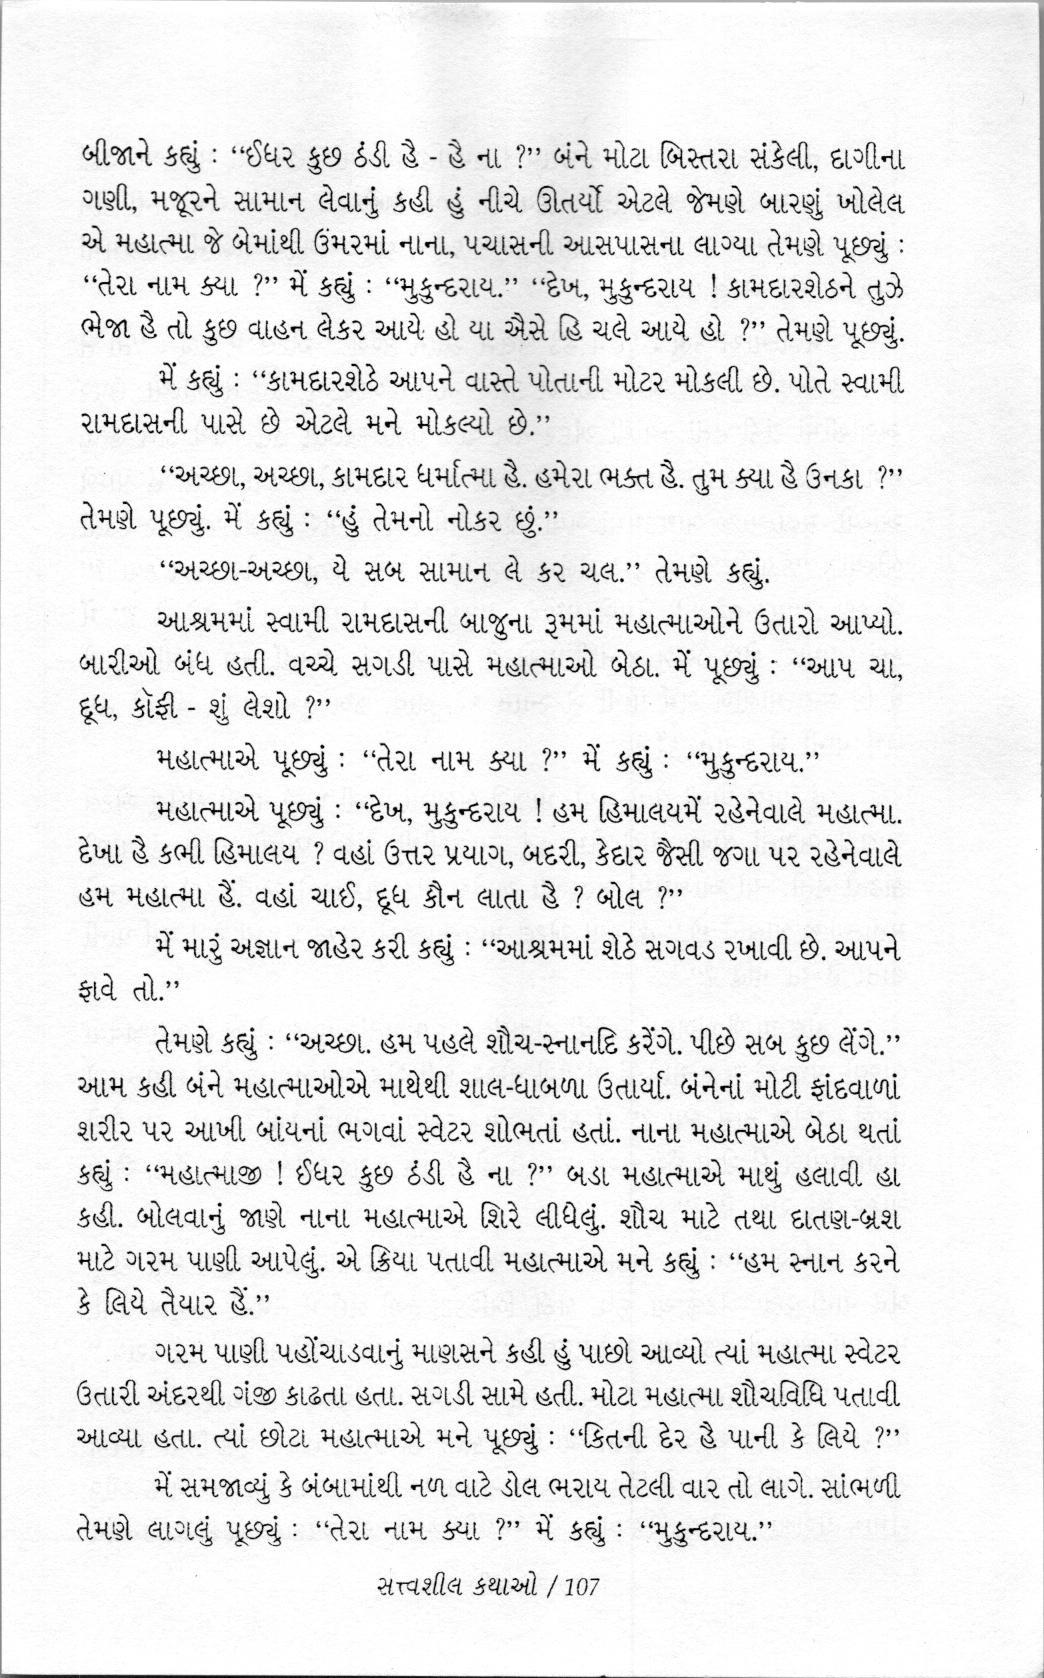 બીજાને કહ્યું : “ઈધર કુછ ઠંડી હૈ - હૈ ના ?” બંને મોટા બિસ્તરા સંકેલી, દાગીના
ગણી, મજૂરને સામાન લેવાનું કહી હું નીચે ઊતર્યો એટલે જેમણે બારણું ખોલેલ
એ મહાત્મા જે બેમાંથી ઉંમરમાં નાના, પચાસની આસપાસના લાગ્યા તેમણે પૂછ્યું :
“તેરા નામ ક્યા ?” મેં કહ્યું : “મુકુન્દરાય.” “દેખ, મુકુન્દરાય ! કામદારશેઠને તુઝે
ભેજા હૈ તો કુછ વાહન લેકર આયે હો યા ઐસે હિ ચલે આયે હો ?” તેમણે પૂછ્યું.
મેં કહ્યું : “કામદારશેઠે આપને વાસ્તે પોતાની મોટર મોકલી છે. પોતે સ્વામી
રામદાસની પાસે છે એટલે મને મોકલ્યો છે.”
“અચ્છા, અચ્છા, કામદાર ધર્માત્મા હૈ. હમેરા ભક્ત હૈ. તુમ ક્યા હૈ ઉનકા ?”
તેમણે પૂછ્યું. મેં કહ્યું : “હું તેમનો નોકર છું.”
“અચ્છા-અચ્છા, યે સબ સામાન લે કર ચલ.” તેમણે કહ્યું.
આશ્રમમાં સ્વામી રામદાસની બાજુના રૂમમાં મહાત્માઓને ઉતારો આપ્યો.
બારીઓ બંધ હતી. વચ્ચે સગડી પાસે મહાત્માઓ બેઠા. મેં પૂછ્યું : “આપ ચા,
દૂધ, કૉફી - શું લેશો ?”
મહાત્માએ પૂછ્યું : “તેરા નામ ક્યા ?” મેં કહ્યું : “મુકુન્દરાય.”
મહાત્માએ પૂછ્યું : “દેખ, મુકુન્દરાય ! હમ હિમાલયમેં રહેનેવાલે મહાત્મા.
દેખા હૈ કભી હિમાલય ? વહાં ઉત્તર પ્રયાગ, બદરી, કેદાર જૈસી જગા પર રહેનેવાલે
હમ મહાત્મા હૈં. વહાં ચાઈ, દૂધ કૌન લાતા હૈ ? બોલ ?”
મેં મારું અજ્ઞાન જાહેર કરી કહ્યું : “આશ્રમમાં શેઠે સગવડ રખાવી છે. આપને
ફાવે તો.”
તેમણે કહ્યું : “અચ્છા. હમ પહલે શૌચ-સ્નાનદિ કરેંગે. પીછે સબ કુછ લેંગે.”
આમ કહી બંને મહાત્માઓએ માથેથી શાલ-ધાબળા ઉતાર્યા. બંનેનાં મોટી ફાંદવાળાં
શરીર પર આખી બાંયનાં ભગવાં સ્વેટર શોભતાં હતાં. નાના મહાત્માએ બેઠા થતાં
કહ્યું : “મહાત્માજી ! ઈધર કુછ ઠંડી હૈ ના ?” બડા મહાત્માએ માથું હલાવી હા
કહી. બોલવાનું જાણે નાના મહાત્માએ શિરે લીધેલું. શૌચ માટે તથા દાતણ-બ્રશ
માટે ગરમ પાણી આપેલું. એ ક્રિયા પતાવી મહાત્માએ મને કહ્યું : “હમ સ્નાન કરને
કે લિયે તૈયાર હૈં.”
ગરમ પાણી પહોંચાડવાનું માણસને કહી હું પાછો આવ્યો ત્યાં મહાત્મા સ્વેટર
ઉતારી અંદરથી ગંજી કાઢતા હતા. સગડી સામે હતી. મોટા મહાત્મા શૌચવિધિ પતાવી
આવ્યા હતા. ત્યાં છોટા મહાત્માએ મને પૂછ્યું : “કિતની દેર હૈ પાની કે લિયે ?”
મેં સમજાવ્યું કે બંબામાંથી નળ વાટે ડોલ ભરાય તેટલી વાર તો લાગે. સાંભળી
તેમણે લાગલું પૂછ્યું : “તેરા નામ ક્યા ?” મેં કહ્યું : “મુકુન્દરાય.”
સત્ત્વશીલ કથાઓ / 107